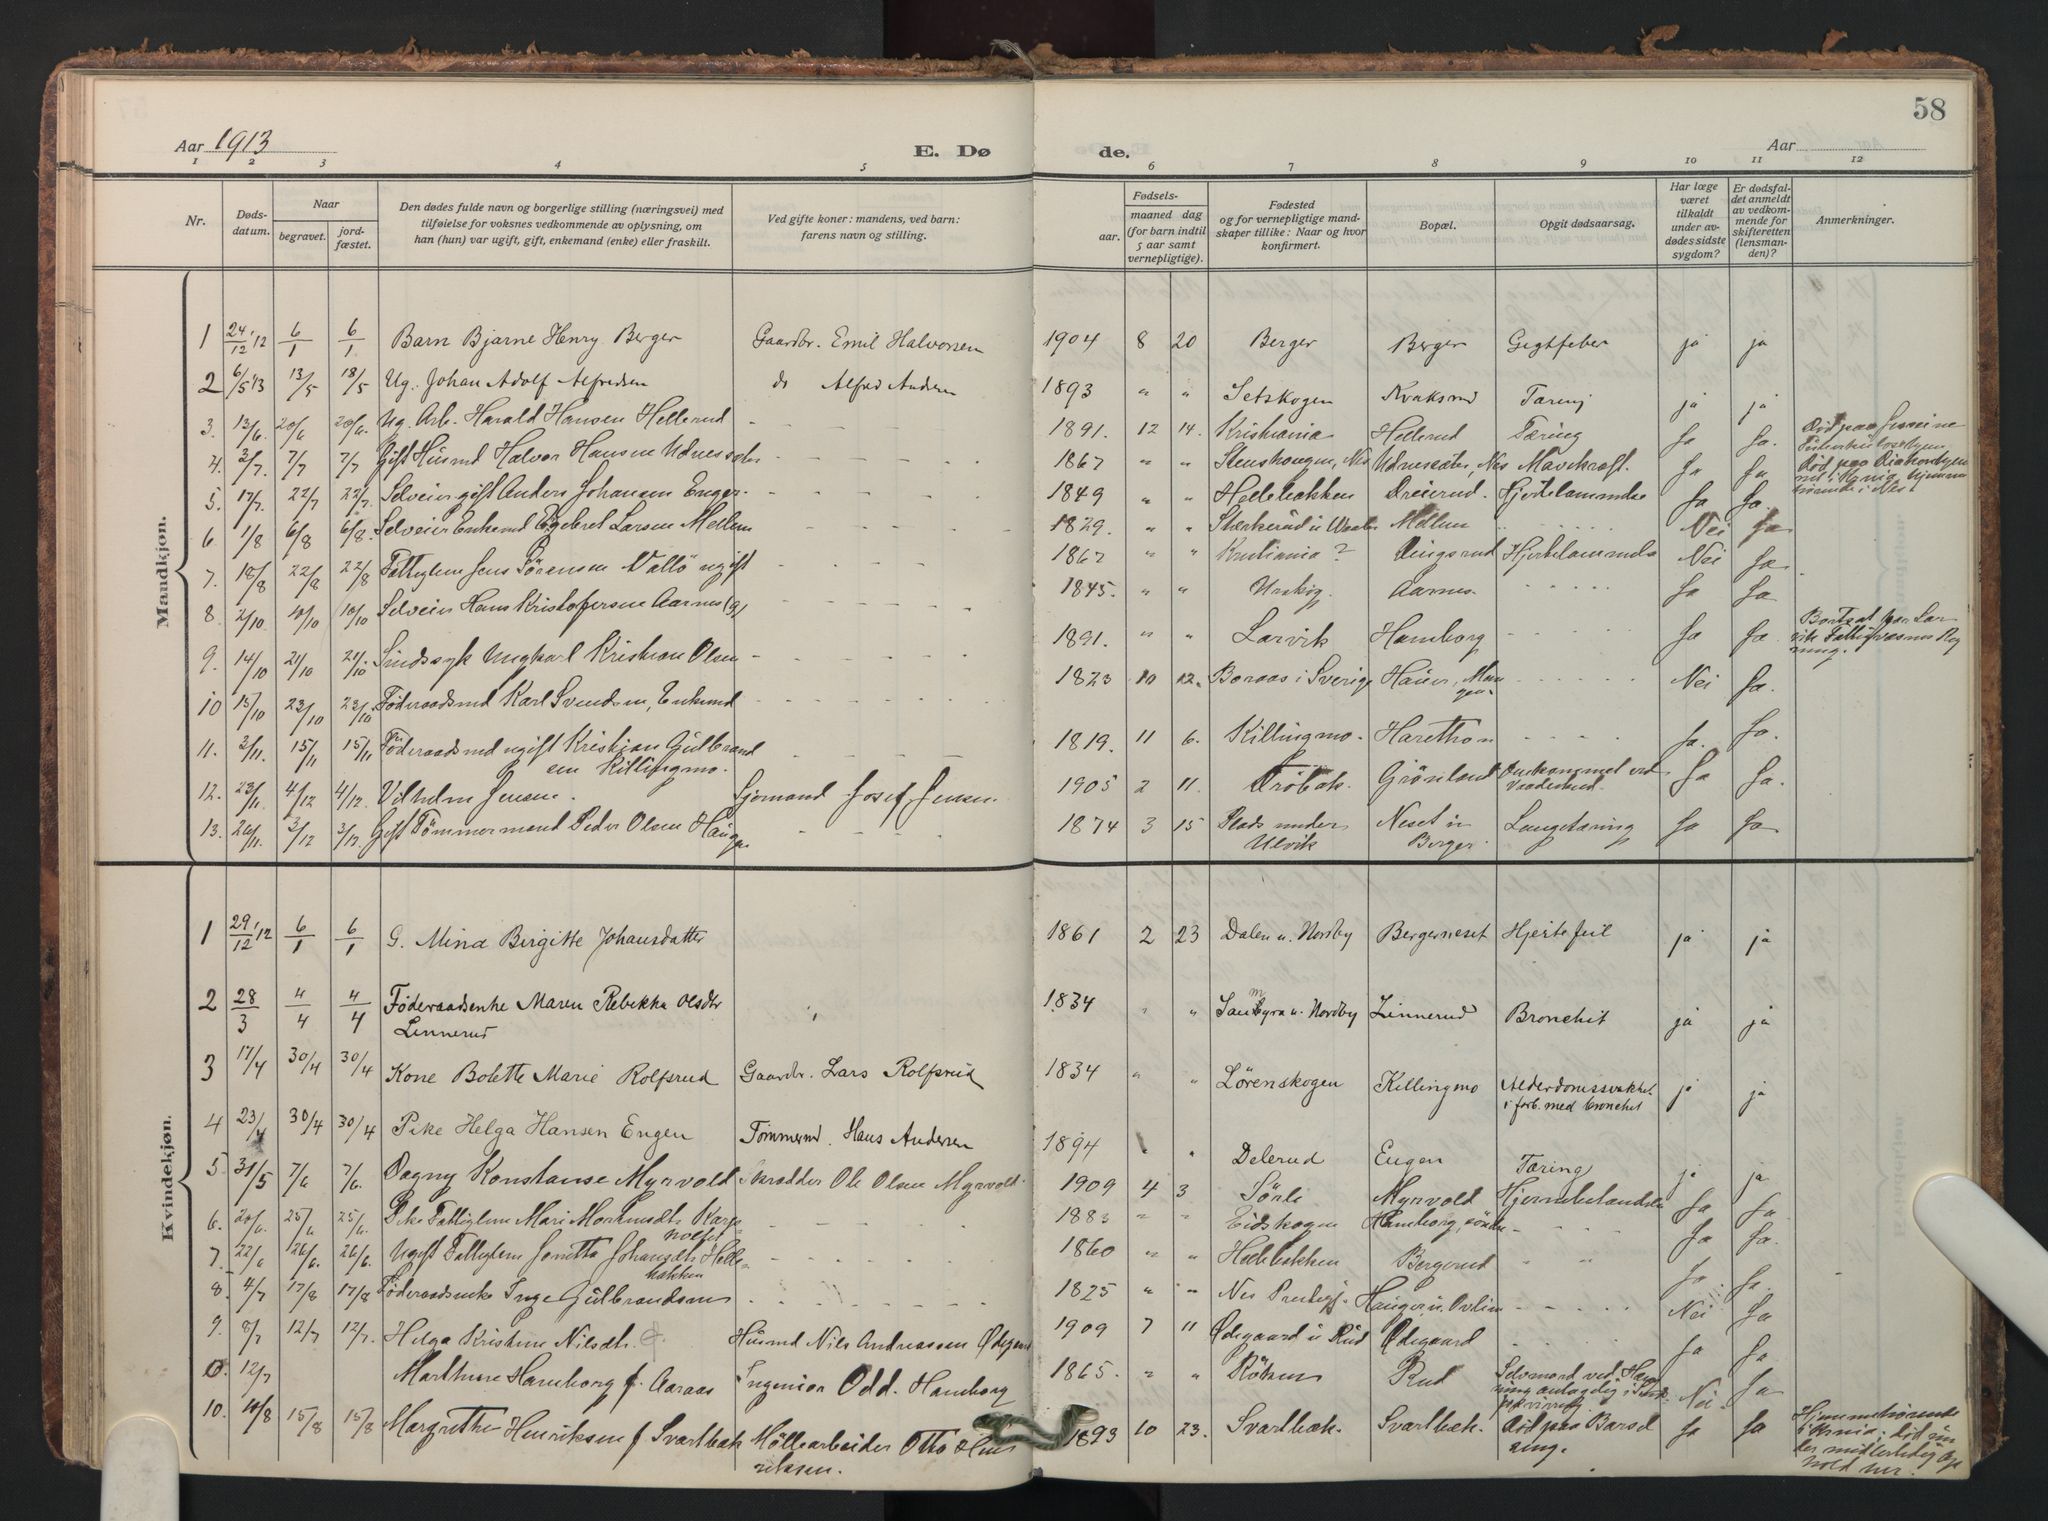 58
Aar 1913
E. Dø
de.
Aar
1 2 3 4 5 6 7 8 9 10 11 12
Nr.
Døds-
datum.
Naar
begravet.
jord-
fæstet.
Den dødes fulde navn og borgerlige stilling (næringsvei) med
tilføielse for voksnes vedkommende av oplysning, om
han (hun) var ugift, gift, enkemand (enke) eller fraskilt.
Ved gifte koner: mandens, ved barn:
farens navn og stilling.
Fødsels-
aar.
maaned dag
(for barn indtil
5 aar samt
vernepligtige).
Fødested
og for vernepligtige mand-
skaper tillike: Naar og hvor
konfirmert.
Bopæl.
Opgit dødsaarsag.
Har læge
været
tilkaldt
under av-
dødes sidste
sygdom?
Er dødsfal-
det anmeldt
av vedkom-
mende for
skifteretten
(lensman-
den)?
Anmerkninger.
Mandkjøn.
1 24/12 '12 6/1 6/1 Barn Bjarne Henry Berger Gaardbr. Emil Halvorsen 1904 8 20 Berger Berger Gigtfeber ja ja
2 6/5 '13 13/5 18/5 Ug. Johan Adolf Alfredsen ds Alfred Andersen 1893 " " Setskogen Kvaksrud Tæring ja ja
3. 13/6. 20/6 20/6. Ug. Arb. Harald Hansen Hellerud 1891. 12 14. Kristiania Hellerud Tæring Ja Ja. Død paa
4. 3/7. 7/7 7/7 Gift Husmd Halvor Hansen Udnessæter 1867 " " Nes Udnessæter, Nes Mavekræft. Ja Ja Død paa
5. 17/7. 22/7 22/7. Selveier gift Anders Johansen Enger. 1849 " " Hellebakken Dreierud. Hjertelammelse Ja Ja. i Nes
6. 1/8 6/8 6/8. Selveier Enkemd Engebret Larsen Mellum 1829. " " Mellum Nei Ja
7. 18/8 22/8 22/8 Fattiglem Jens Sørensen Vallø ugift 1867 " " Kristiania? Hjertelammelse Nei Ja
8. 2/10 10/10 10/10 Selveier Hans Kristofersen Aarnes (g) 1845. " " Urskog. Aarnes. Ja Ja
9. 14/10 21/10 21/10 Sindssyk Ungkarl Kristian Olsen 1891. " " Larvik Hamborg Ja Ja Bortsat par Lar
vik Fattigvæsens Reg
ning.
10 15/10 23/10 23/10 Føderaadsmd Karl Svendsen, Enkemd 1823 10 12. Boraas i Sverige Nei Ja.
11. 3/11. 15/11 15/11 Føderaadsmd ugift Kristian Gulbrand
sen Killingmo. 1819. 11 6. Killingmo. Harethon Ja. Ja.
12. 23/11. 4/12 4/12. Vilhelm Jensen. Sjømand Josef Jensen 1905 2 11. Drøbak. Grönland Omkommet ved
Vaadeskud. Ja Ja.
13. 26/11. 3/12 3/12 Gift Tømmermand Peder Olsen Haugen 1874 3 15 Plads under
Ulvik Neset u
Berger. Lungetæring Ja Ja
Kvindekjøn.
1 29/12 '12 6/1 6/1 G. Mina Birgitte Johansdatter 1861 2 23 Dalen u. Nordby Bergerneset Hjertefeil ja ja
2 28/3 4/4 4/4 Føderaadsenke Maren Rebekka Olsdtr
Linnerud 1834 " " Nordby Linnerud Bronchit ja ja
3 17/4 30/4 30/4 Kone Bolette Marie Rolfsrud Gaardbr. Lars Rolfsrud 1834 " " Lørenskogen Killingmo Alderdomssvakhet
i forb. med bronchit ja ja
4 23/4 30/4 30/4 Pike Helga Hansen Engen Tømmermd. Hans Andersen 1894 " " Delerud Engen Tæring ja ja
5. 31/5 7/6 7/6. Dagny Konstanse Myrvold Skrædder Ole Olsen Myrvold. 1909 4 3 Sörli Myrvold Ja Ja
6. 20/6 25/6 25/6. Pike Fattiglem Mari 1883 " " Eidskogen Hamborg, Ja Ja.
7. 22/6 26/6. 26/6. Ugift Fattiglem Johansdtr Helle-
bakken 1860 " " Hellebakken Bergerud " " Ja Ja.
8. 4/7 17/8 17/8 Føderaadsenke Inge Gulbrandsen 1825 " " Nes Prestegj. Nei Ja
9. 8/7 12/7 12/7. Helga Kristine Nilsdtr. Husmd Nils Andreassen Ødegaard 1909 7 11 Ødegaard u Rud Ødegaard Ja Ja.
10. 12/7 Marthine Hamborg f. Aaraas Ingeniør Odd. Hamborg 1865. " " Röken Rud Selvmord ved Hæn
ning antagelig i Sinds
forvirring Nei Ja
10. 10/8 15/8 15/8 Margrethe Henriksen f Svartbæk Möllearbeider Otto Hen
riksen. 1893 10 23. Svartbæk. Svartbæk. Død paa Barsel
seng. Ja Ja Hjemmehørende
i Krnia; død un
der midlertidig Op
hold her.